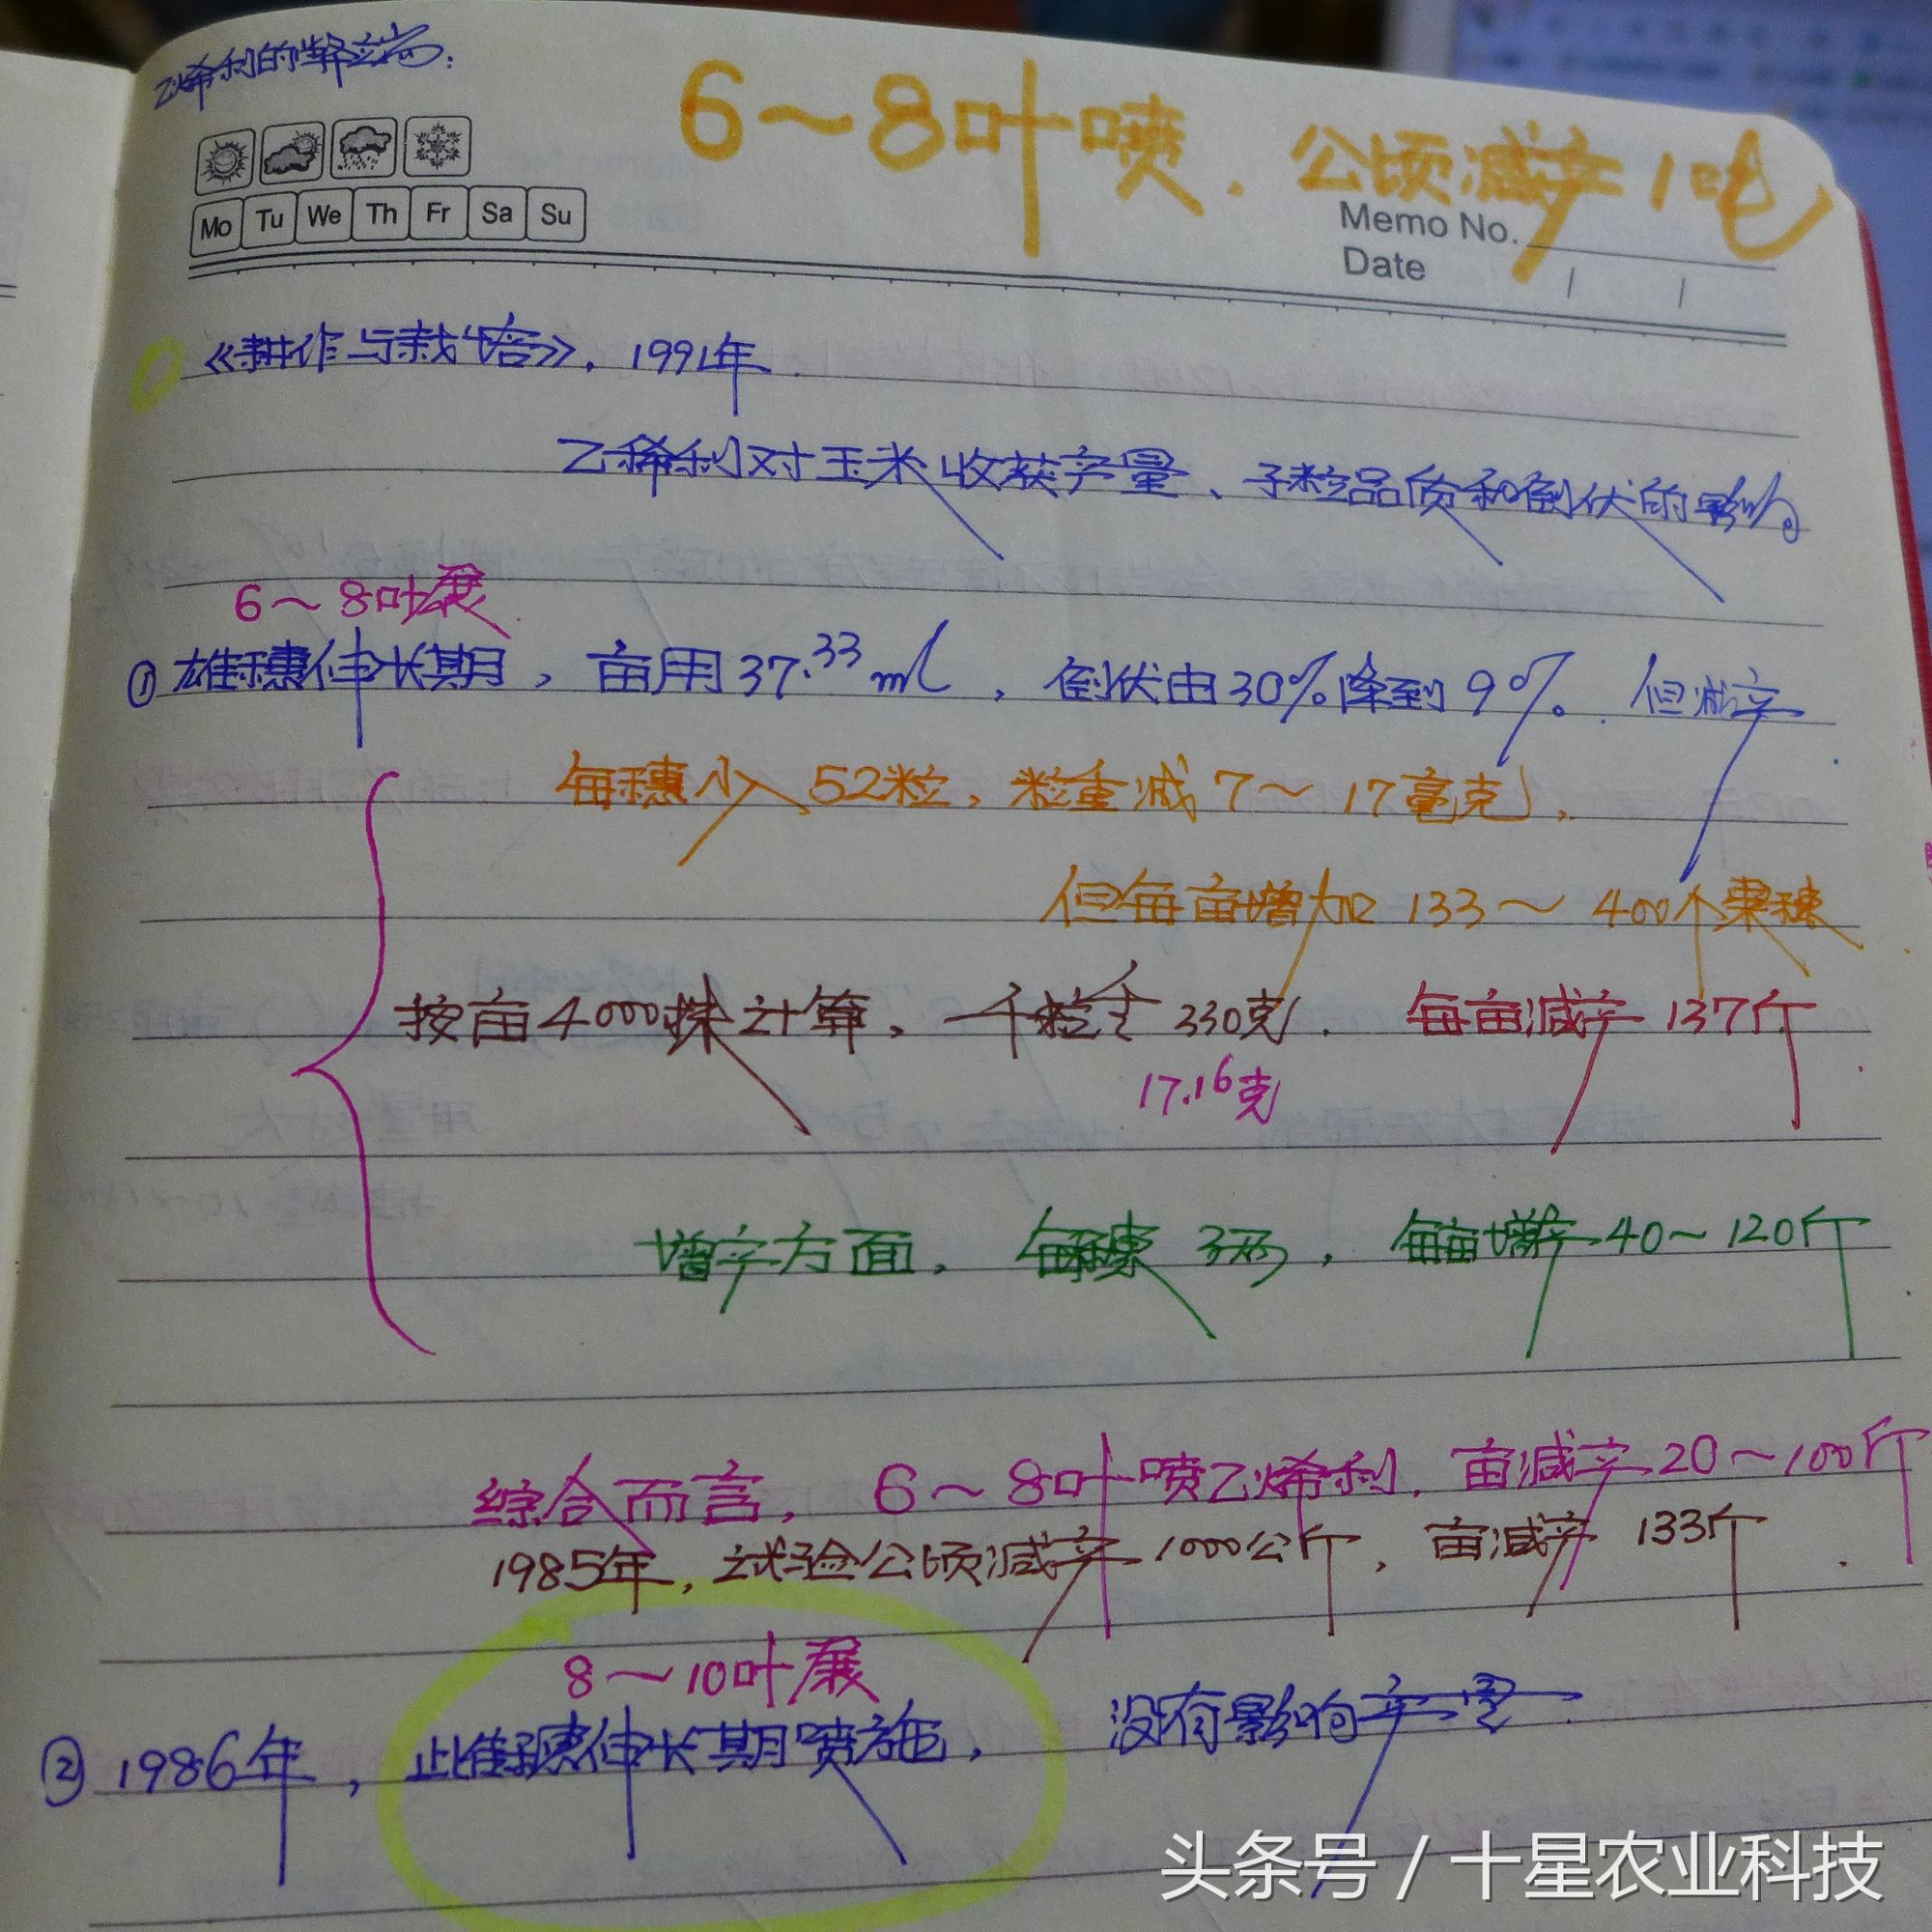 乙烯利的弊端：
6～8叶喷．公顷减产1吨
Mo Tu We Th Fr Sa Su
Memo No.
Date / /
《耕作与栽培》，1991年．
乙烯利对玉米收获产量、子粒品质和倒伏的影响。
6～8叶展
① 雄穗伸长期，亩用37.33ml，倒伏由30%降到9%。但减产
每穗少52粒，粒重减7～17毫克，
但每亩增加133～400个果穗
按亩4000株计算，千粒重330克．每亩减产137斤
17.16克
增产方面，每穗3两，每亩增产40～120斤
综合而言，6～8叶喷乙烯利，亩减产20～100斤
1985年，试验公顷减产1000公斤，亩减产133斤．
8～10叶展
② 1986年，雌穗伸长期喷施，没有影响产量
头条号 / 十星农业科技